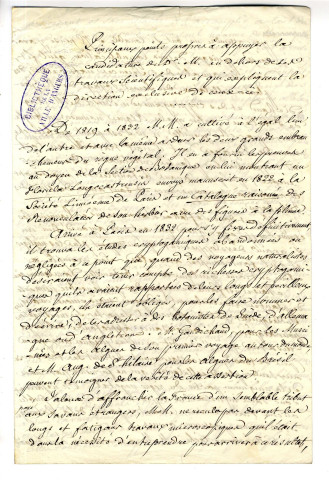 Principaux points propres à appuyer la
candidature du Dr. M. en dehors de ses
travaux scientifiques et qui expliquent la
direction exclusive de ceux-ci
BIBLIOTHEQUE
VILLE D'ANGERS
De 1819 à 1832 M. M. a cultivé à l'égal l'un
de l'autre et avec la même ardeur les deux grands embran
chemens du règne végétal. Il en a fourni les preuves
au doyen de la Section de Botanique en lui montrant un
Florula Lougocastrensis envoyé manuscrit en 1822 à la
Société Linnéenne de Paris et un Catalogue raisonné des
Renonculacées de son herbier avec des figures à la plume.
Arrivé à Paris en 1832 pour s'y fixer définitivement
il trouva les études cryptogamiques abandonnées ou
négligées à ce point que, quand des voyageurs naturalistes
désiraient tenir compte des richesses cryptogami-
ques qu'ils avaient rapportées de leurs longs et périlleux
voyages, ils étaient obligés, pour les faire nommer et
décrire, de les adresser à des botanistes de Suède, d'Allema
gne ou d'Angleterre. M. Gaudichaud, pour les Mous
ses et les Algues de son premier voyage autour du monde,
et M. Aug. de St Hilaire pour les Algues du Brésil
peuvent témoigner de la vérité de cette assertion.
Jaloux d'affranchir la France d'un semblable tribut
aux Savans étrangers, M. M. ne recula pas devant les
longs et fatigans travaux microscopiques qu'il était
dans la nécessité d'entreprendre pour arriver à ce résultat,